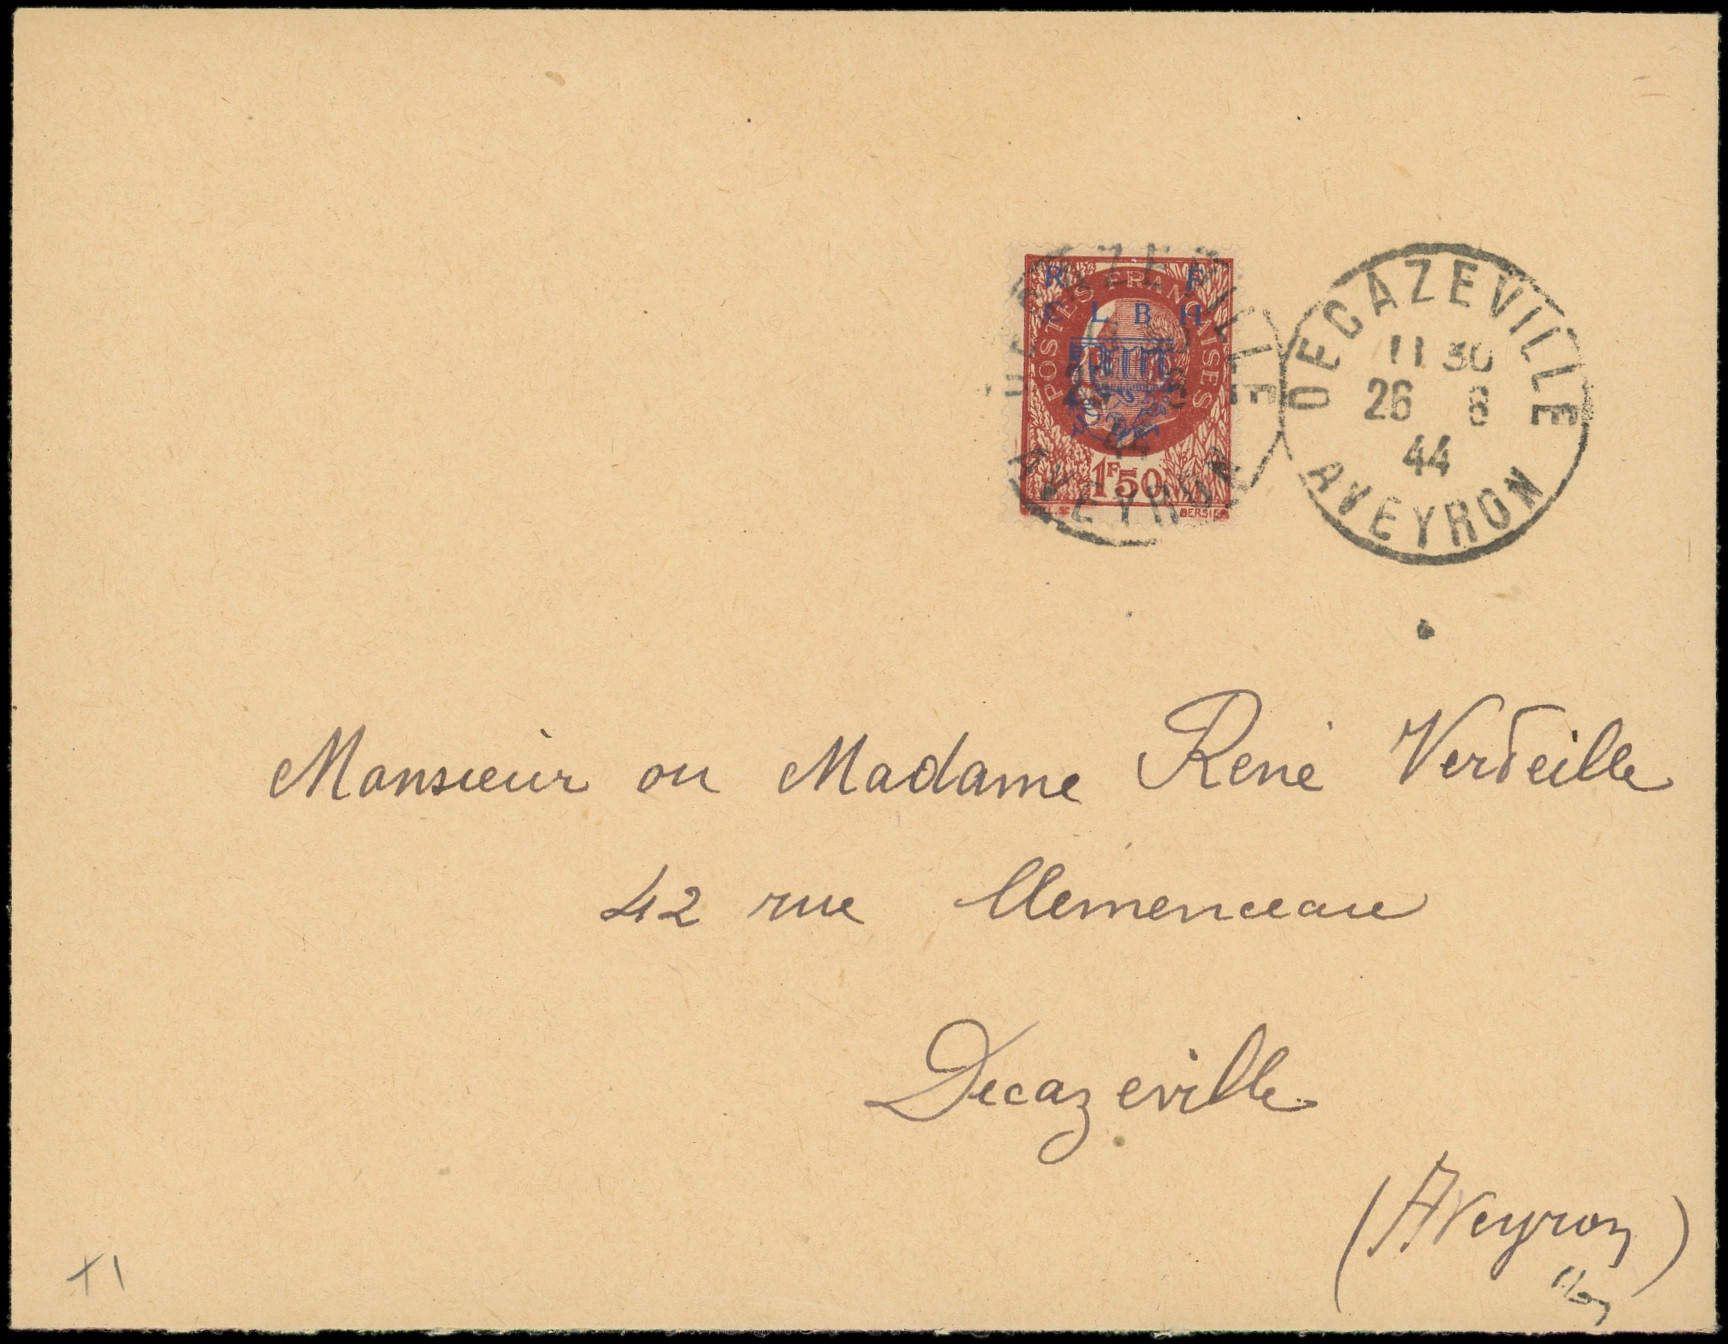 R F
C L B H
POSTES FRANÇAISES
1F50
BERSIER
DECAZEVILLE
26 8
44
AVEYRON
DECAZEVILLE
11 30
26 8
44
AVEYRON
Monsieur ou Madame René Verdeille
42 rue Clemenceau
Decazeville
(Aveyron)